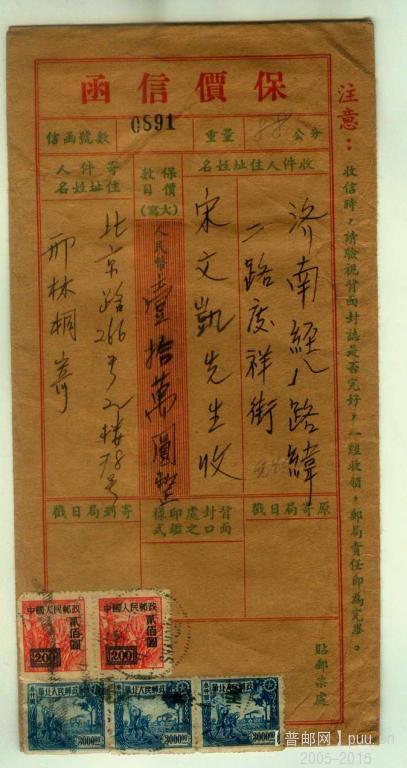 保價信函
信函號數
0891
重量
公分
收件人住址姓名
濟南經八路緯
二路慶祥街
宋文凱先生收
保價數目
(大寫)
人民幣壹拾萬圓整
寄件人住址姓名
北京路266号2楼78号
邢林桐寄
注意：
收信時，請驗視背面封誌是否完好，一經收領，郵局責任即為完畢。
原寄局日戳
背面封口處之印鑑樣式
寄到局日戳
貼郵票處
中國人民郵政
貳佰圓
200
中國人民郵政
貳佰圓
200
華北人民郵政
3000
華北人民郵政
3000
華北人民郵政
3000
【普邮网】puu.cn
2005-2015